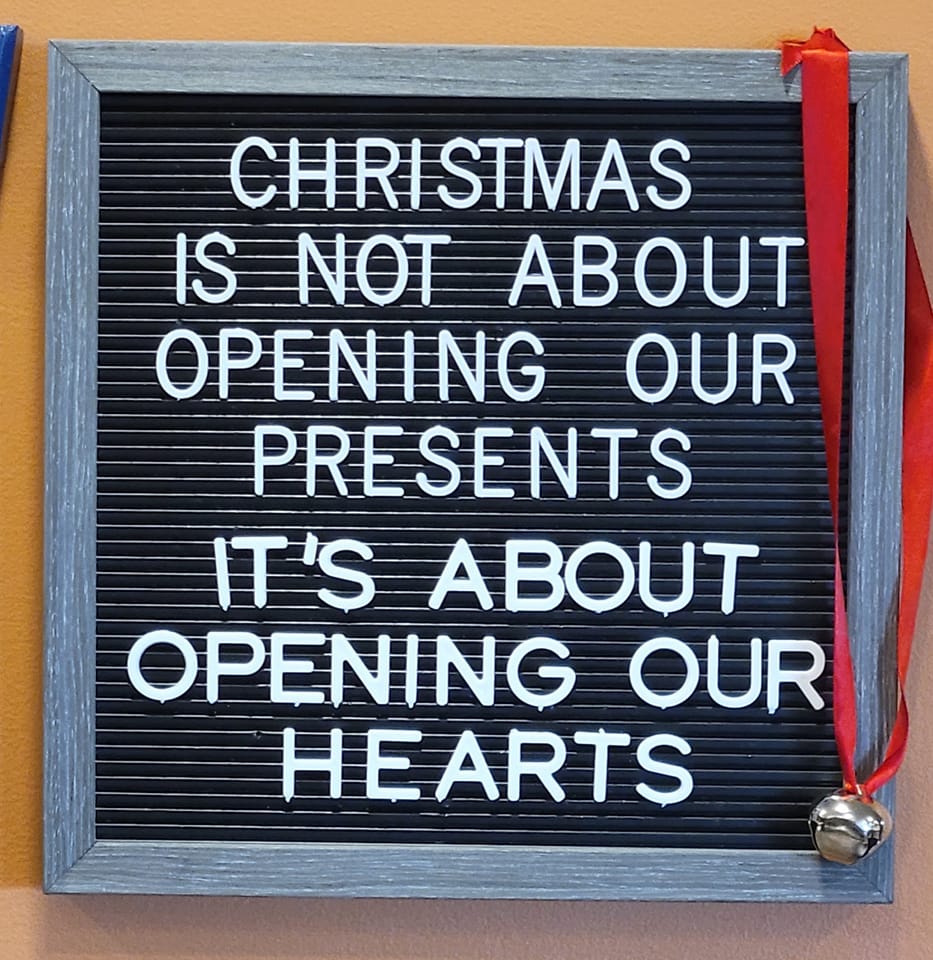 CHRISTMAS
IS NOT ABOUT
OPENING OUR
PRESENTS
IT'S ABOUT
OPENING OUR
HEARTS